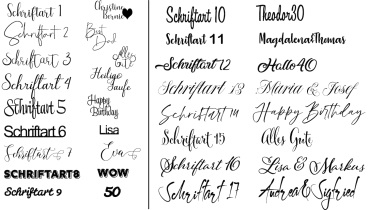 Schriftart 1
Christine
Bernie
Schriftart 2
Best
Dad
Schriftart 3
Ally
Schriftart 4
Heilige
Taufe
Schriftart 5
Happy
Birthday
Schriftart 6
Lisa
Schriftart 7
Eva
SCHRIFTART8
WOW
Schriftart 9
50
Schriftart 10
Theodor30
Schriftart 11
Magdalena&Thomas
Schriftart 12
Hallo40
Schriftart 13
Maria & Josef
Schriftart 14
Happy Birthday
Schriftart 15
Alles Gute
Schriftart 16
Lisa & Markus
Schriftart 17
Andrea&Sigfried